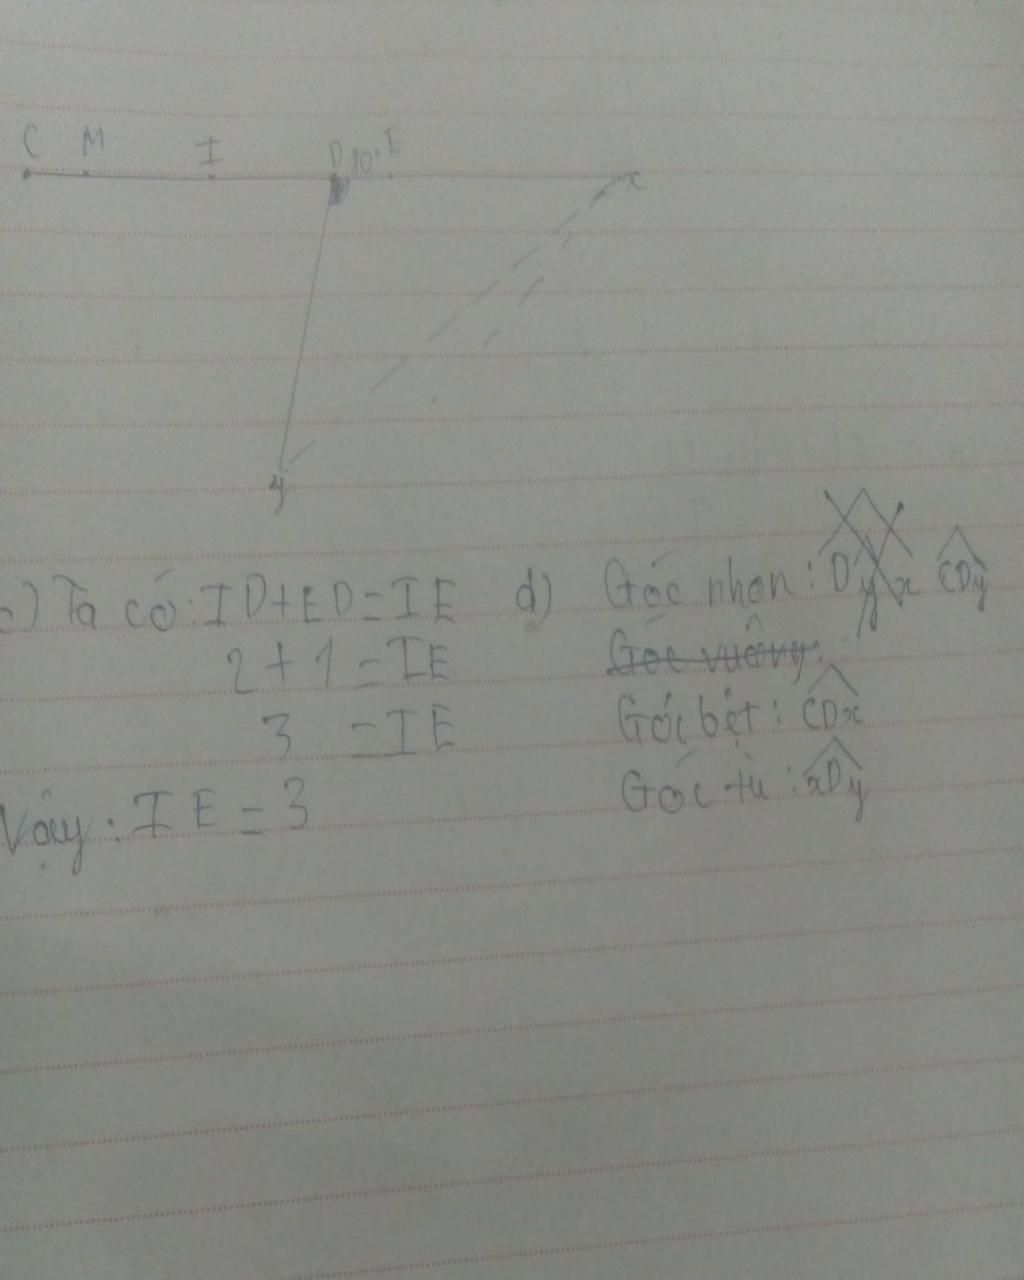 C M I D E
x
y
c) Ta có: ID+ED=IE
2+1=IE
3 =IE
Vậy: IE=3
d) Góc nhọn: Dyx CDy
Góc vuông:
Góc bẹt: CDx
Góc tù: xDy